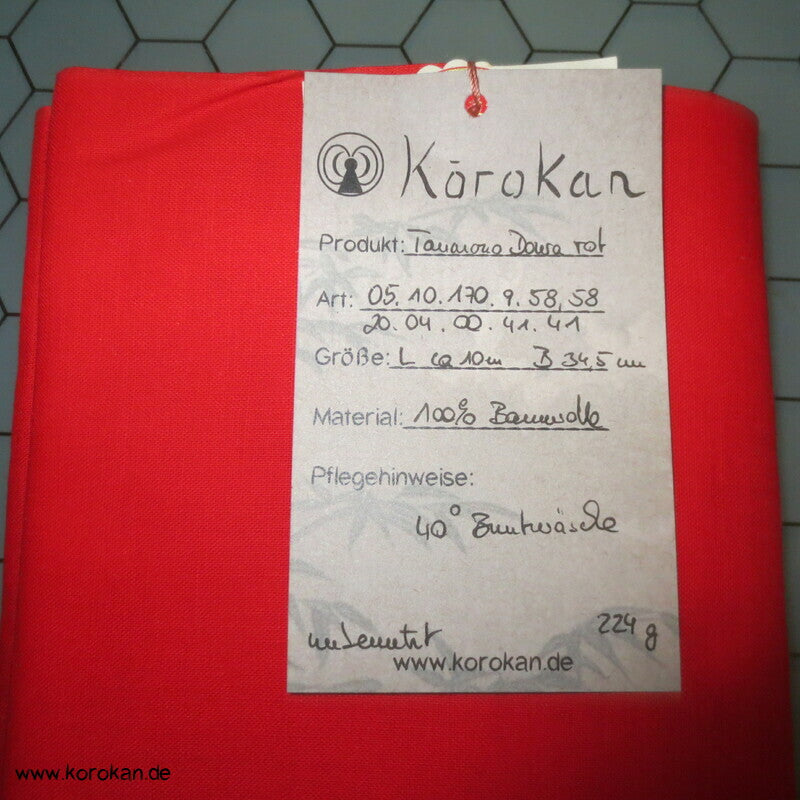 Kōrokan
Produkt: Tanmono Doura rot
Art: 05. 10. 170. 9. 58, 58
20. 04. 00. 41. 41
Größe: L ca 10m B 34,5 cm
Material: 100% Baumwolle
Pflegehinweise:
40° Buntwäsche
unbenutzt
224 g
www.korokan.de
www.korokan.de